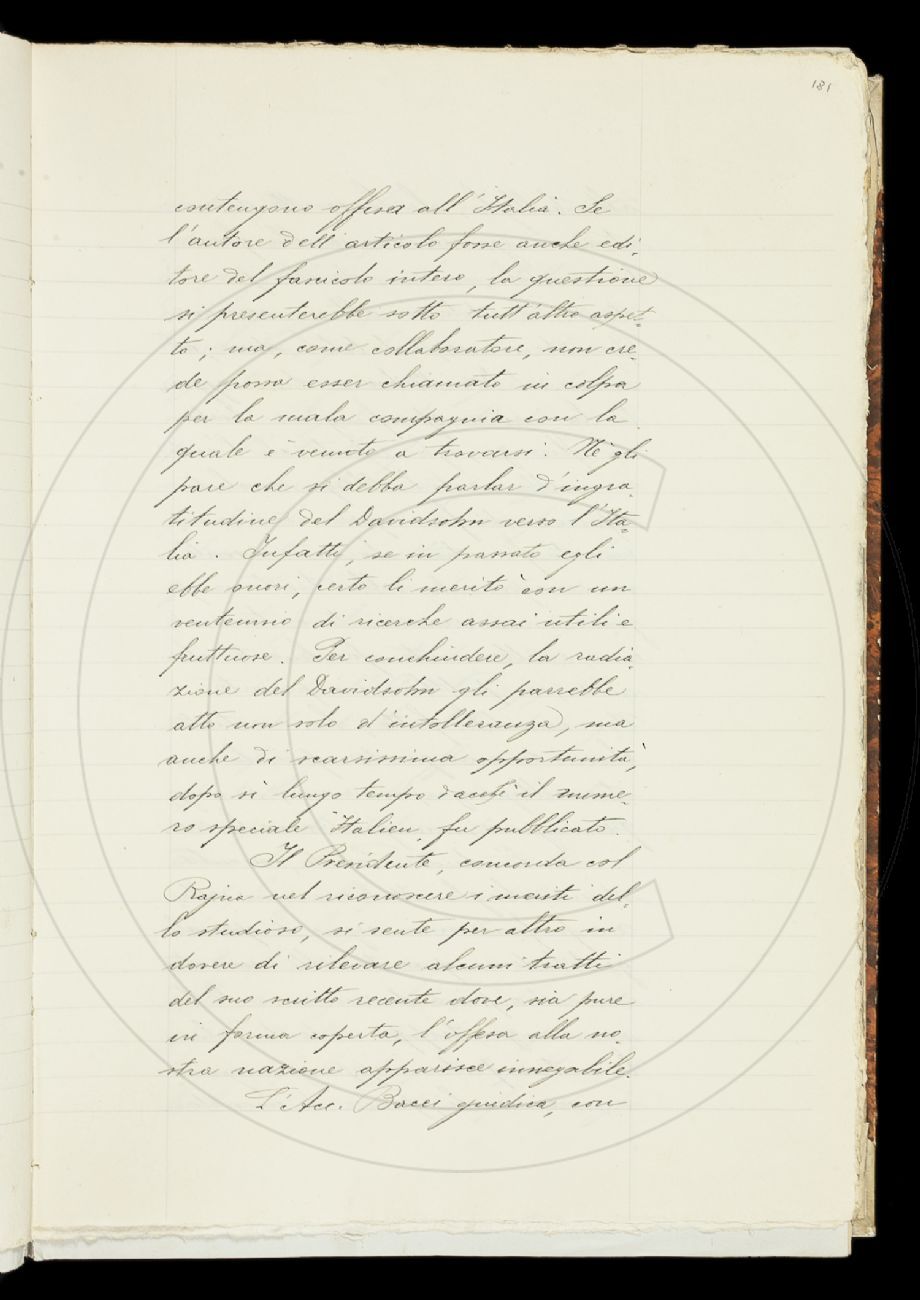 181
contengono offesa all'Italia. Se
l'autore dell'articolo fosse anche edi-
tore del fascicolo intero, la questione
si presenterebbe sotto tutt'altro aspet-
to; ma, come collaboratore, non cre-
de possa esser chiamato in colpa
per la mala compagnia con la
quale è venuto a trovarsi. Nè gli
pare che si debba parlar d'ingra-
titudine del Davidsohn verso l'Ita-
lia. Infatti, se in passato egli
ebbe onori, certo li meritò con un
ventennio di ricerche assai utili e
fruttuose. Per conchiudere, la radia-
zione del Davidsohn gli parrebbe
atto non solo d'intolleranza, ma
anche di scarsissima opportunità,
dopo sì lungo tempo dacchè il nume-
ro speciale "Italien" fu pubblicato.
Il Presidente, concorda col
Rajna nel riconoscere i meriti del-
lo studioso, si sente per altro in
dovere di rilevare alcuni tratti
del suo scritto recente dove, sia pure
in forma coperta, l'offesa alla no-
stra nazione apparisce innegabile.
L'Acc. Bacci giudica, con